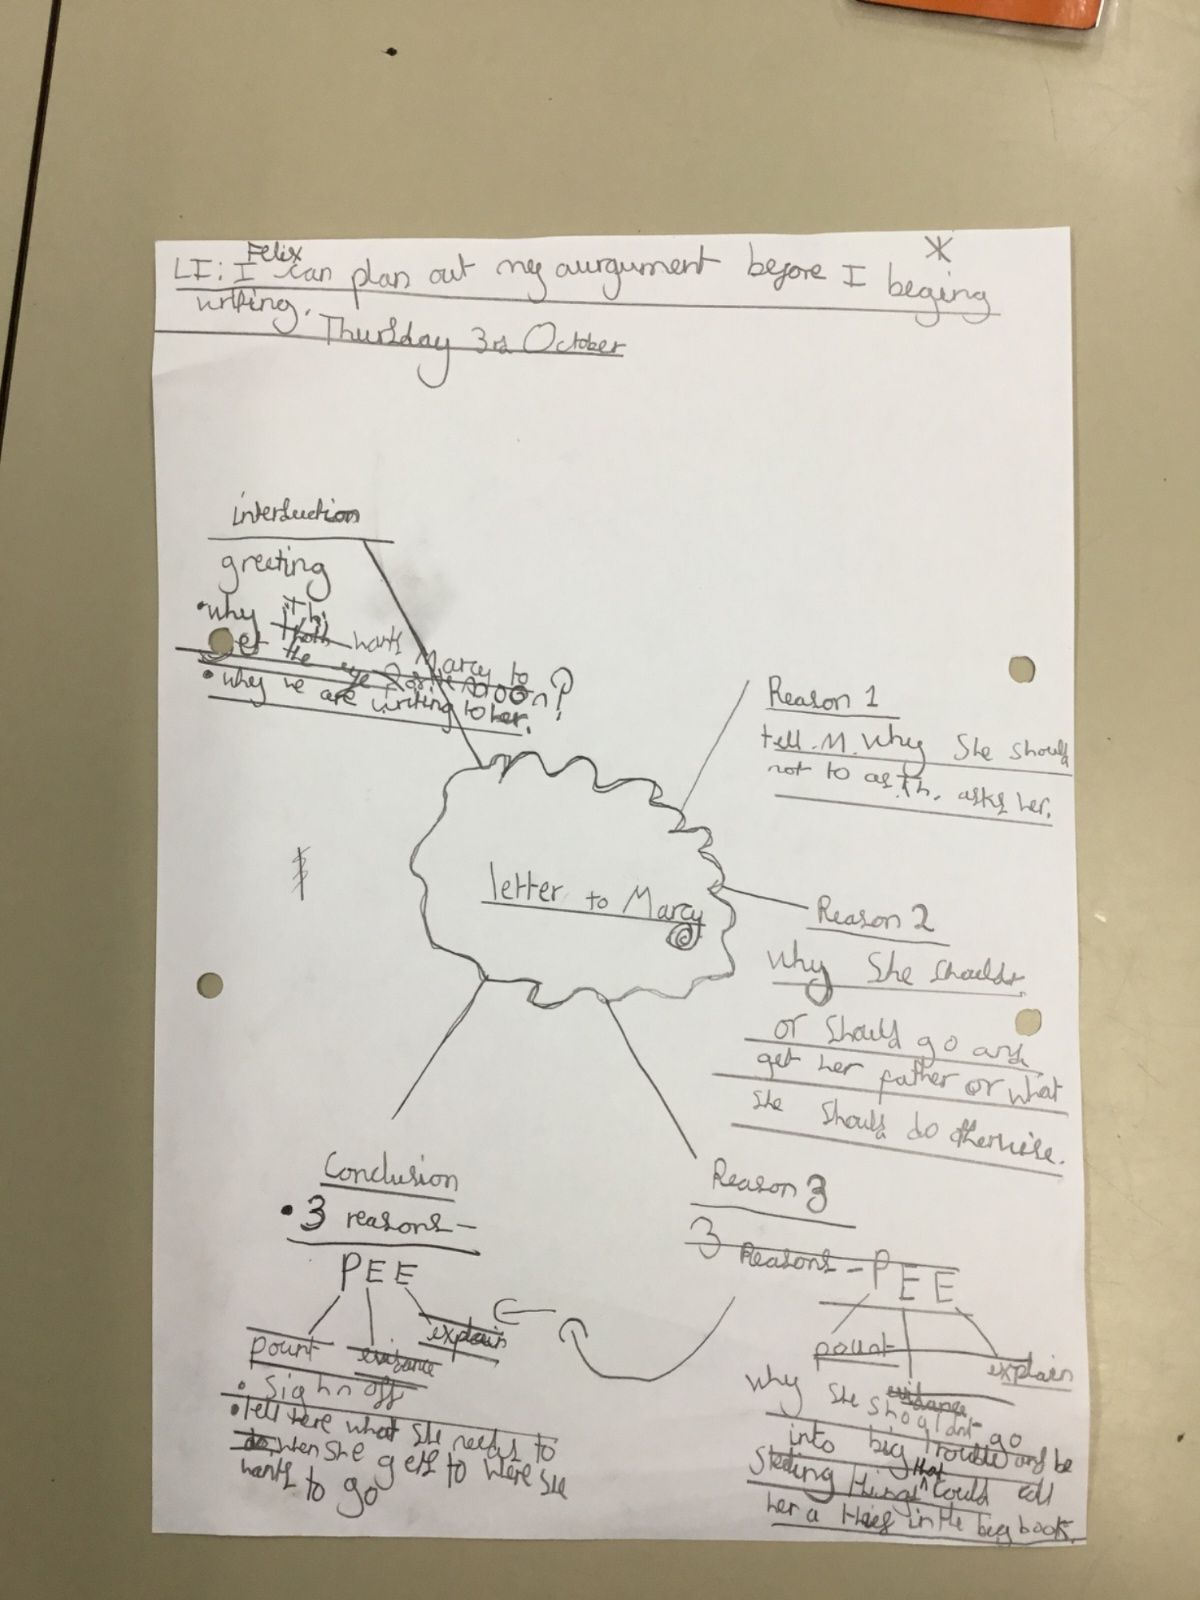 Felix
LI: I can plan out my aurgument before I beging
writing.
Thursday 3rd October
interduction
greeting
• why Th. wants Marcy to
get the eye for the moon?
• why we are writing to her.
letter to Marcy
Reason 1
tell .M. why she should
not to as Th. asks her.
Reason 2
why she shouldt
or should go and
get her father or what
she should do otherwise.
Reason 3
3 Reasons - PEE
pount
evidance
explain
why she shouldnt go
into big trouble and be
stealing things that could call
her a thief in the big book.
Conclusion
• 3 reasons -
PEE
pount
evidance
explain
• sighn off
• tell here what she needs to
do when she gets to were she
wants to go